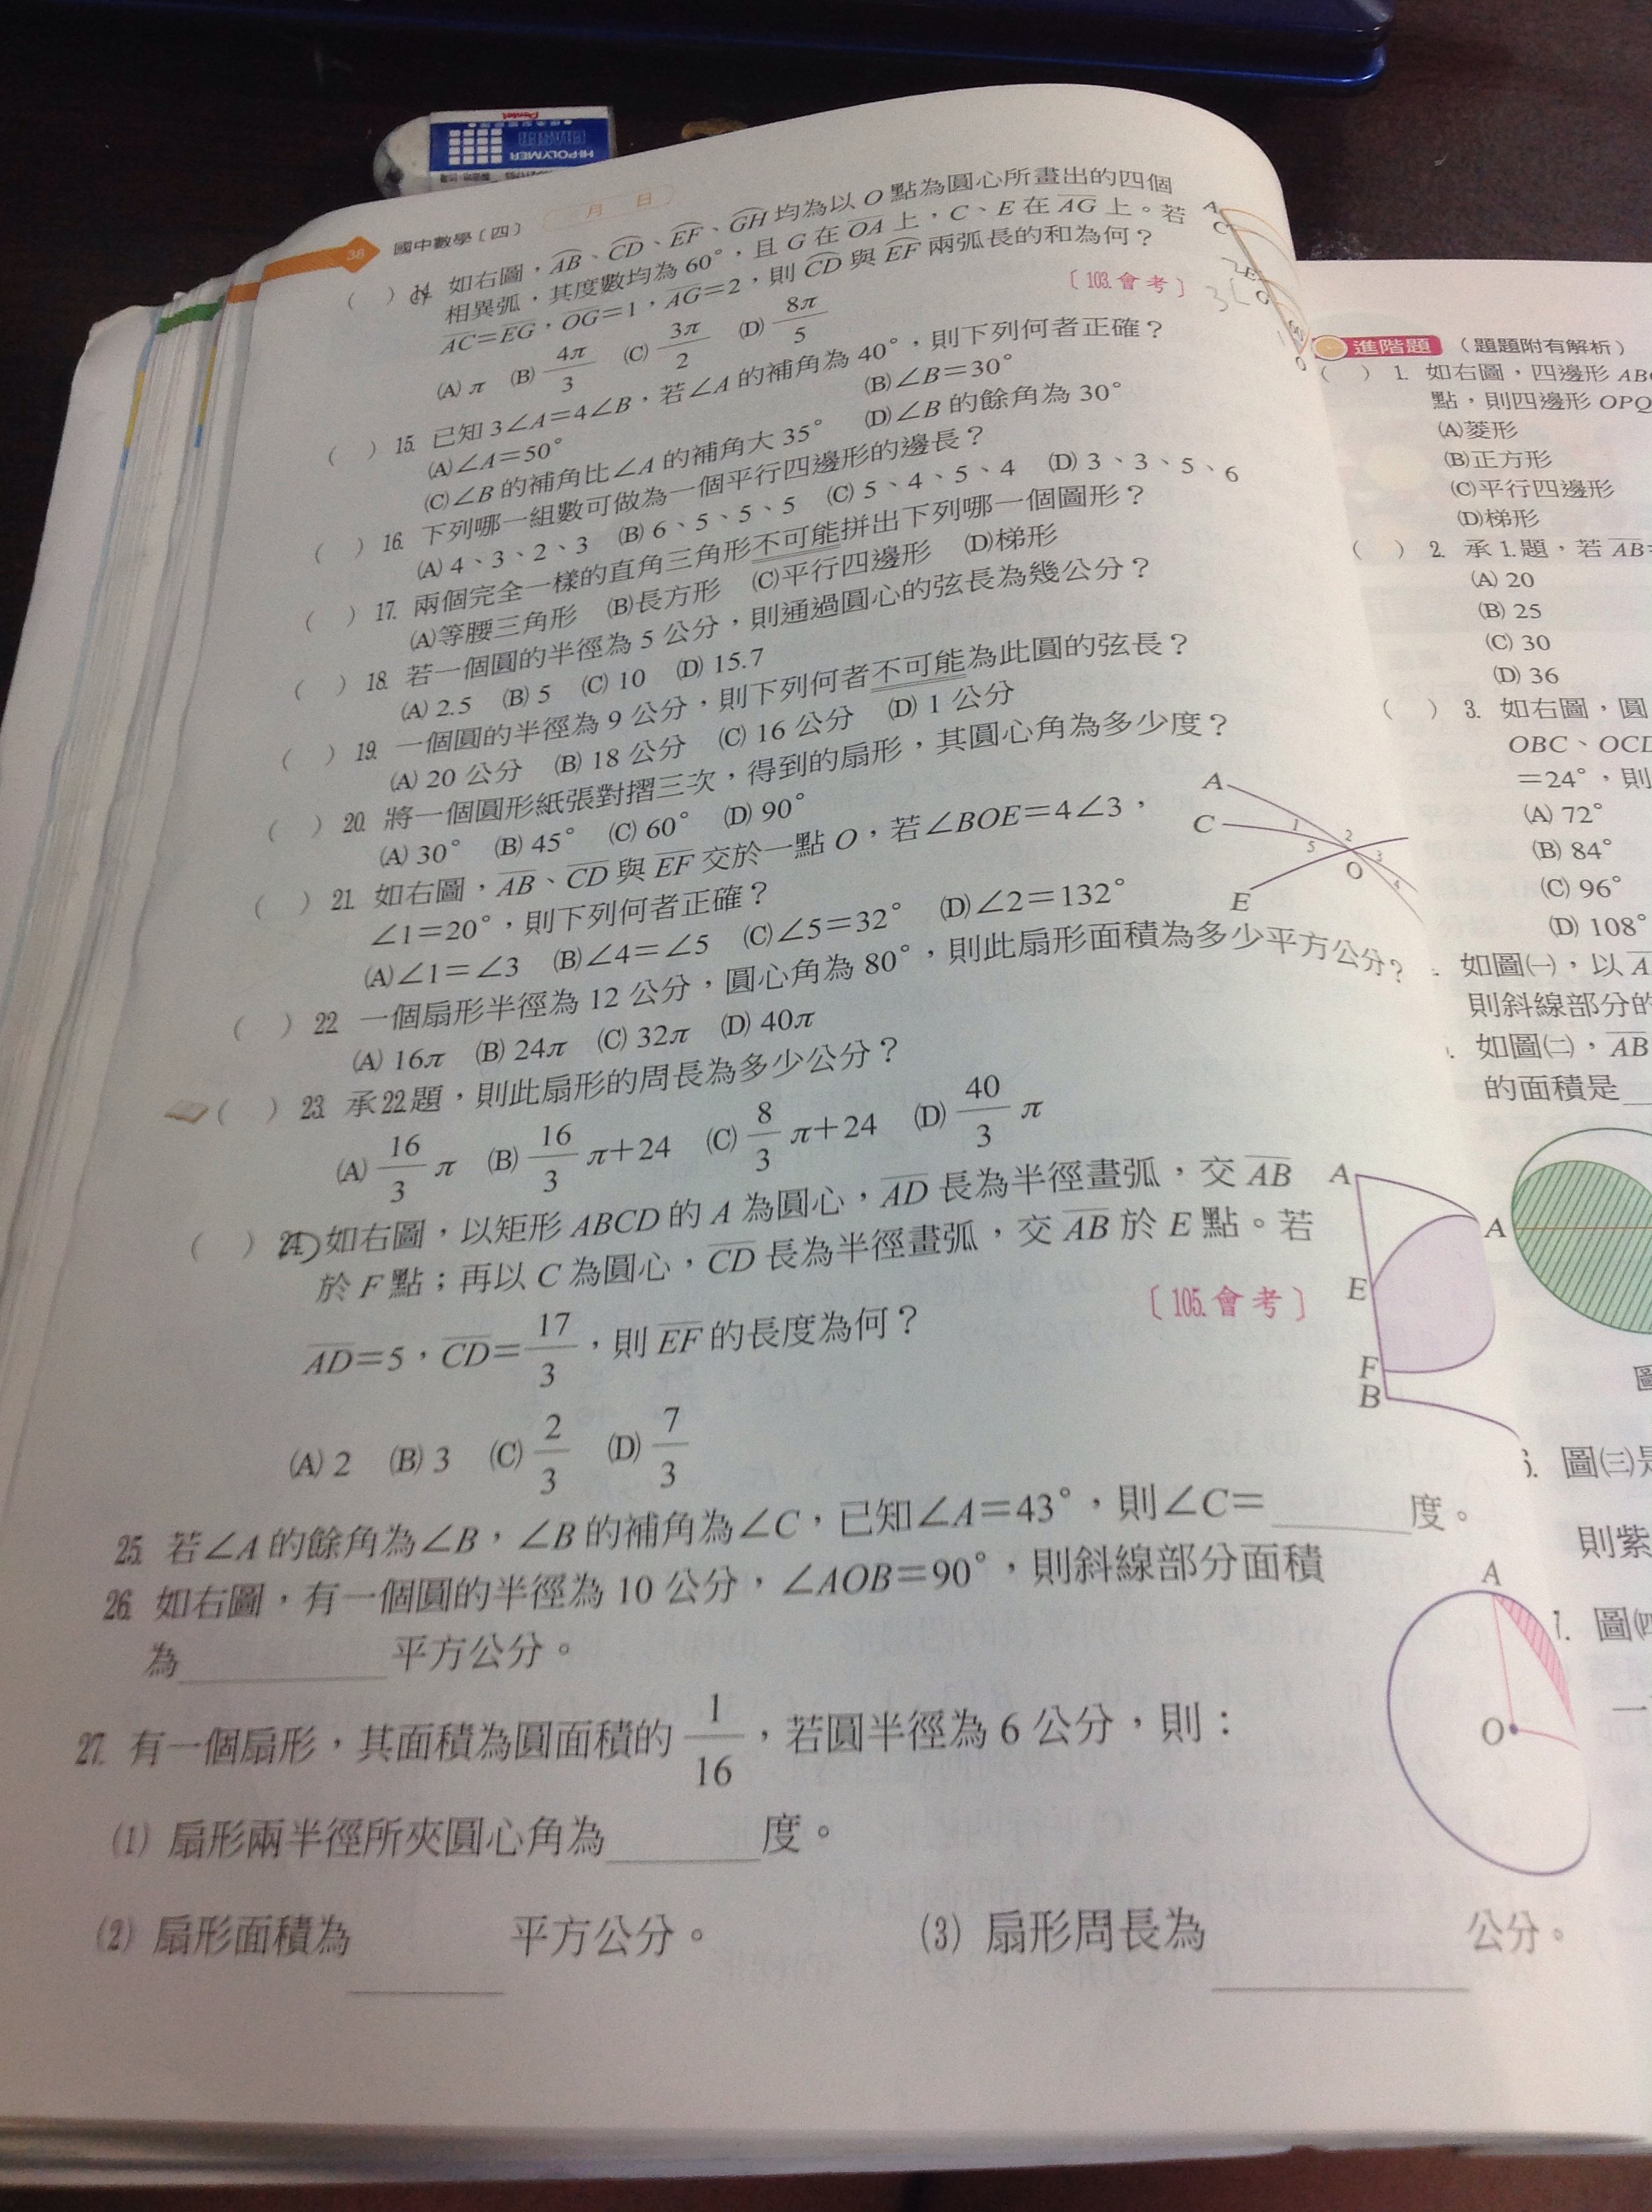 Pentel
HI-POLYMER
ERASER
月 日
38
國中數學〔四〕
( ) 14. 如右圖，AB、CD、EF、GH均為以 O 點為圓心所畫出的四個
相異弧，其度數均為 60°，且 G 在 OA 上，C、E 在 AG 上。若
AC=EG，OG=1，AG=2，則 CD 與 EF 兩弧長的和為何？
〔103.會考〕
(A) π (B) 4π/3 (C) 3π/2 (D) 8π/5
A
C
E
G
60°
O
( ) 15. 已知 3∠A=4∠B，若∠A 的補角為 40°，則下列何者正確？
(A)∠A=50° (B)∠B=30°
(C)∠B 的補角比∠A 的補角大 35° (D)∠B 的餘角為 30°
( ) 16. 下列哪一組數可做為一個平行四邊形的邊長？
(A) 4、3、2、3 (B) 6、5、5、5 (C) 5、4、5、4 (D) 3、3、5、6
( ) 17. 兩個完全一樣的直角三角形不可能拼出下列哪一個圖形？
(A)等腰三角形 (B)長方形 (C)平行四邊形 (D)梯形
( ) 18. 若一個圓的半徑為 5 公分，則通過圓心的弦長為幾公分？
(A) 2.5 (B) 5 (C) 10 (D) 15.7
( ) 19. 一個圓的半徑為 9 公分，則下列何者不可能為此圓的弦長？
(A) 20 公分 (B) 18 公分 (C) 16 公分 (D) 1 公分
( ) 20. 將一個圓形紙張對摺三次，得到的扇形，其圓心角為多少度？
(A) 30° (B) 45° (C) 60° (D) 90°
( ) 21. 如右圖，AB、CD 與 EF 交於一點 O，若∠BOE=4∠3，
∠1=20°，則下列何者正確？
(A)∠1=∠3 (B)∠4=∠5 (C)∠5=32° (D)∠2=132°
A
C
E
1
5
2
3
4
O
( ) 22. 一個扇形半徑為 12 公分，圓心角為 80°，則此扇形面積為多少平方公分？
(A) 16π (B) 24π (C) 32π (D) 40π
( ) 23. 承22.題，則此扇形的周長為多少公分？
(A) 16/3 π (B) 16/3 π+24 (C) 8/3 π+24 (D) 40/3 π
( ) 24. 如右圖，以矩形 ABCD 的 A 為圓心，AD 長為半徑畫弧，交 AB
於 F 點；再以 C 為圓心，CD 長為半徑畫弧，交 AB 於 E 點。若
AD=5，CD=17/3，則 EF 的長度為何？
〔105.會考〕
(A) 2 (B) 3 (C) 2/3 (D) 7/3
A
E
F
B
25. 若∠A 的餘角為∠B，∠B 的補角為∠C，已知∠A=43°，則∠C=______度。
26. 如右圖，有一個圓的半徑為 10 公分，∠AOB=90°，則斜線部分面積
為______平方公分。
A
O
27. 有一個扇形，其面積為圓面積的 1/16，若圓半徑為 6 公分，則：
(1) 扇形兩半徑所夾圓心角為______度。
(2) 扇形面積為______平方公分。 (3) 扇形周長為______公分。
進階題 （題題附有解析）
( ) 1. 如右圖，四邊形 AB
點，則四邊形 OPQ
(A)菱形
(B)正方形
(C)平行四邊形
(D)梯形
( ) 2. 承 1.題，若 AB=
(A) 20
(B) 25
(C) 30
(D) 36
( ) 3. 如右圖，圓
OBC、OCD
=24°，則
(A) 72°
(B) 84°
(C) 96°
(D) 108°
如圖㈠，以 A
則斜線部分的
如圖㈡，AB
的面積是
A
圖㈢是
則紫
圖㈣